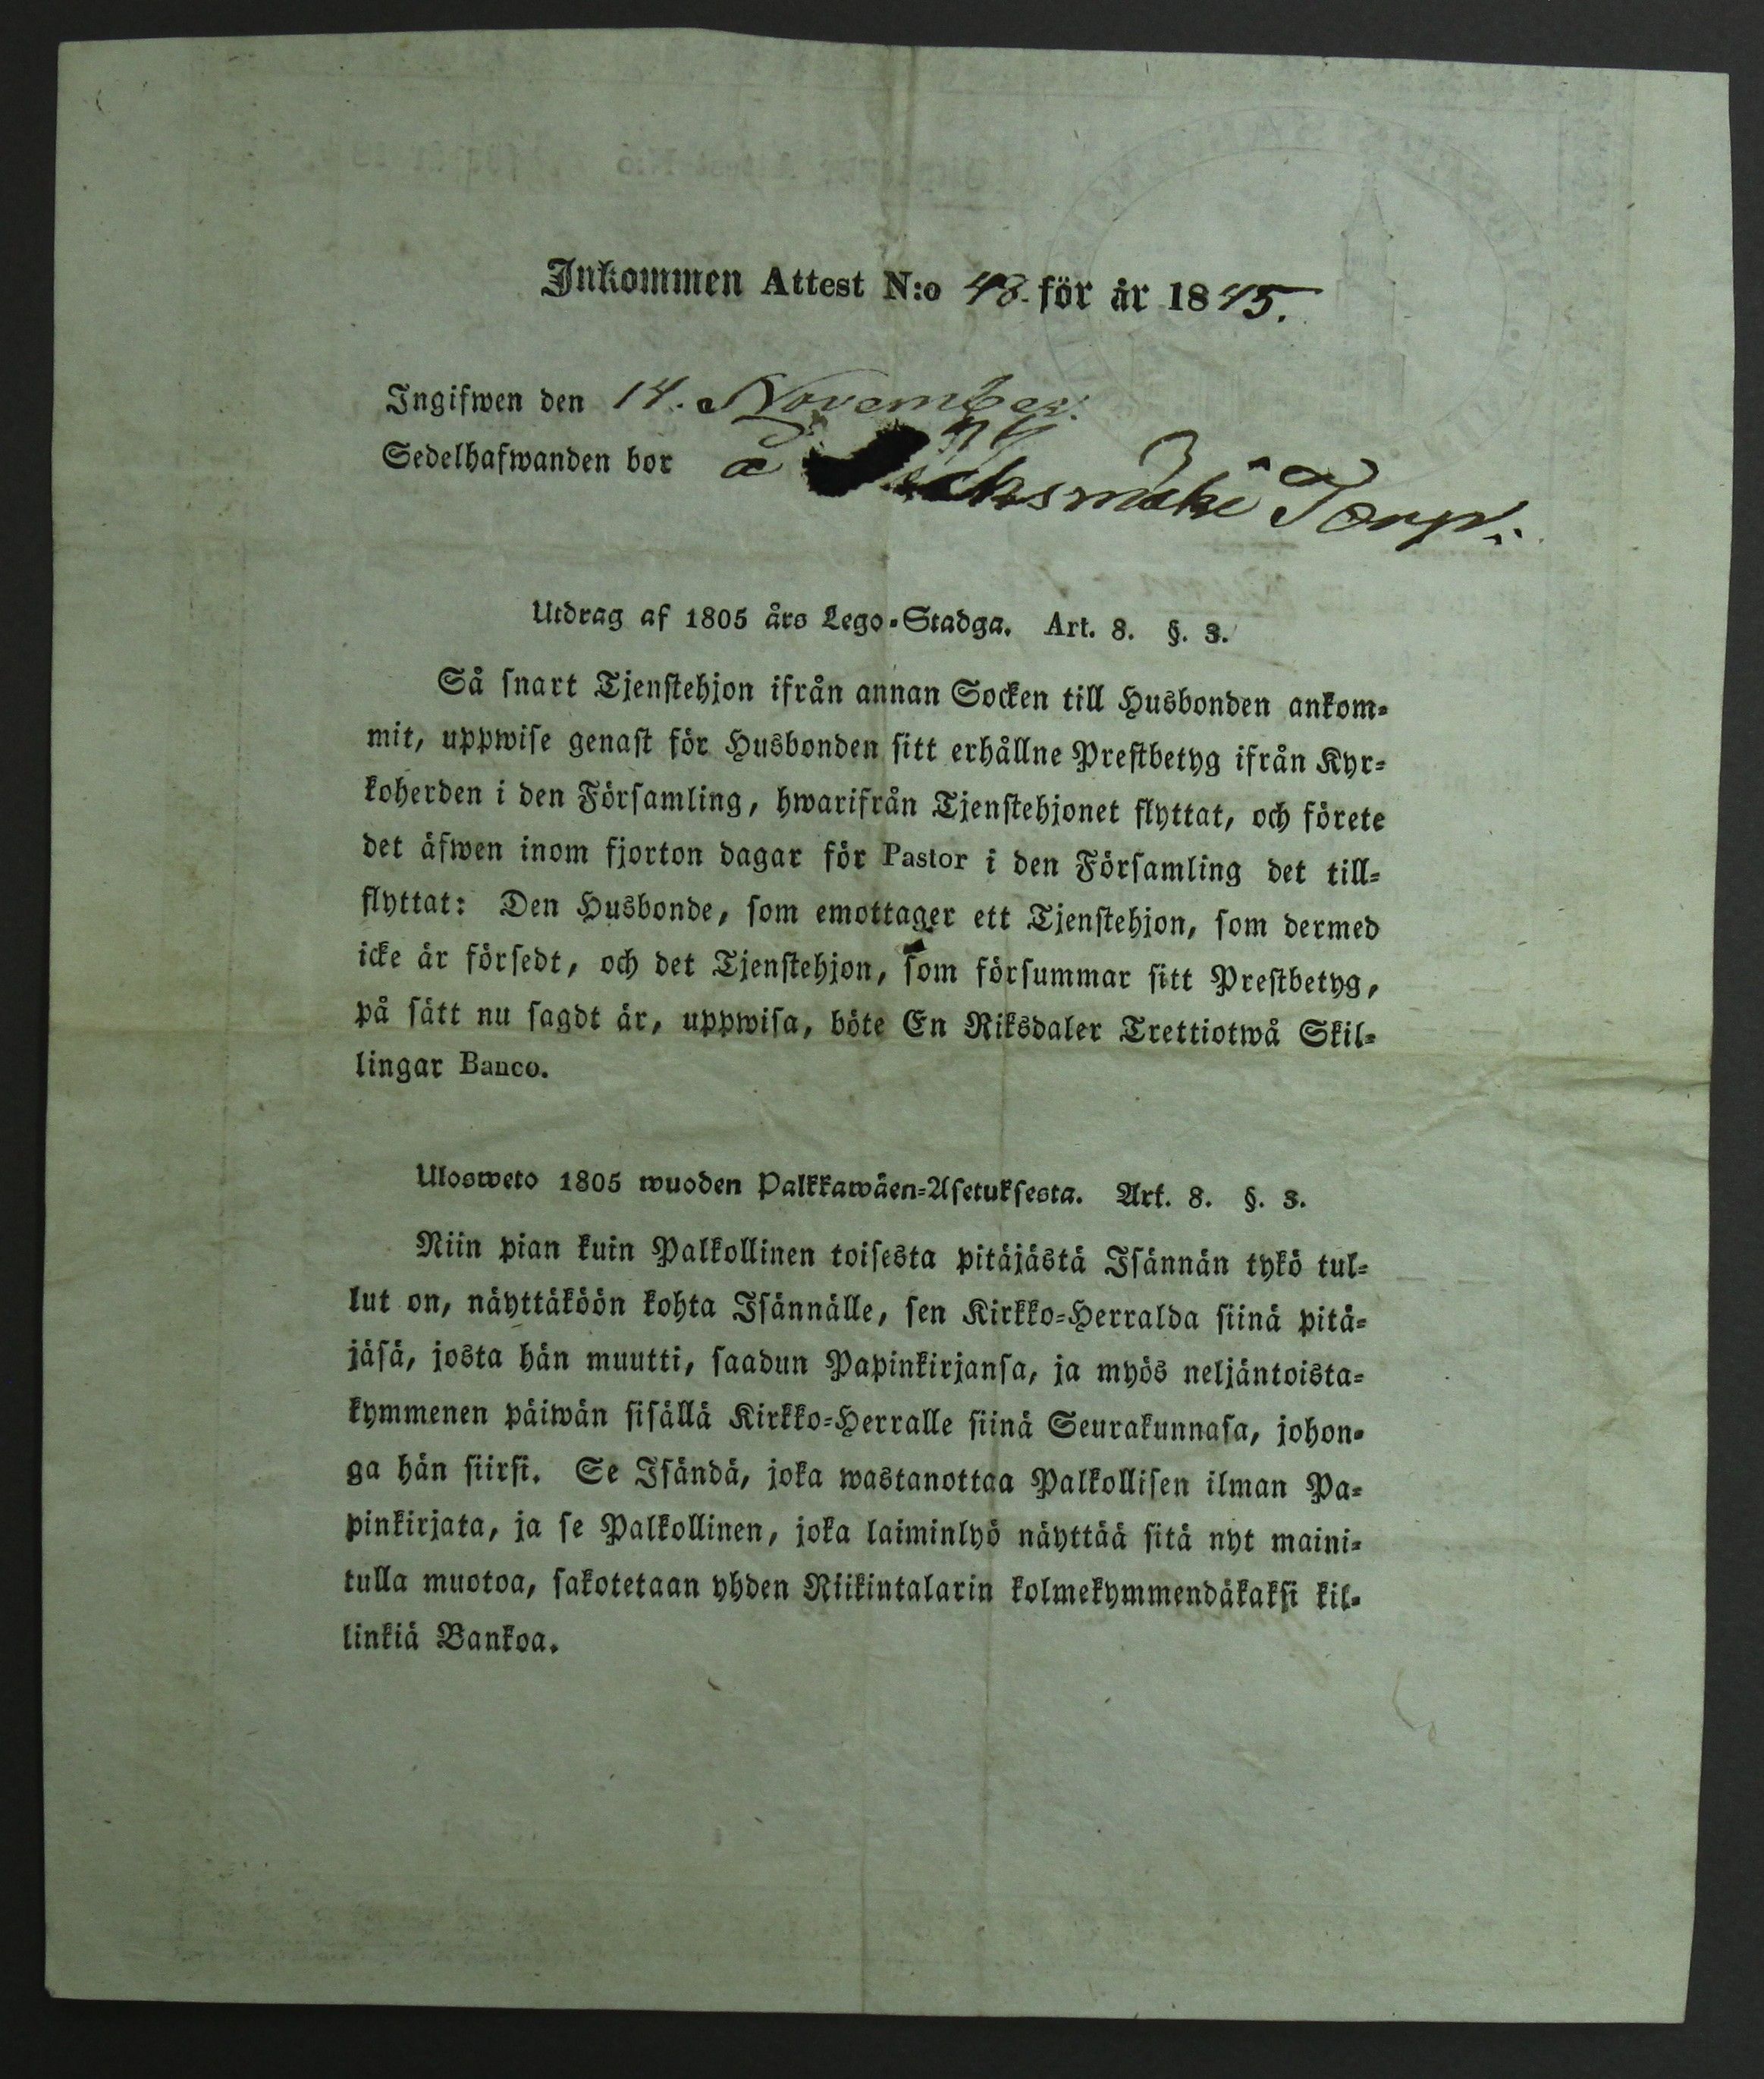 Inkommen Attest N:o 48. för år 1845.
Ingifwen den 14. November.
Sedelhafwanden bor å Torp.
Utdrag af 1805 års Lego-Stadga. Art. 8. §. 3.
Så snart Tjenstehjon ifrån annan Socken till Husbonden ankom-
mit, uppwise genast för Husbonden sitt erhållne Prestbetyg ifrån Kyr-
koherden i den Församling, hwarifrån Tjenstehjonet flyttat, och förete
det äfwen inom fjorton dagar för Pastor i den Församling det till-
flyttat: Den Husbonde, som emottager ett Tjenstehjon, som dermed
icke är försedt, och det Tjenstehjon, som försummar sitt Prestbetyg,
på sätt nu sagdt är, uppwisa, böte En Riksdaler Trettiotwå Skil-
lingar Banco.
Ulosweto 1805 wuoden Palkkawäen-Asetuksesta. Art. 8. §. 3.
Niin pian kuin Palkollinen toisesta pitäjästä Isännän tykö tul-
lut on, näyttäköön kohta Isännälle, sen Kirkko-Herralda siinä pitä-
jäsä, josta hän muutti, saadun Papinkirjansa, ja myös neljäntoista-
kymmenen päiwän sisällä Kirkko-Herralle siinä Seurakunnasa, johon-
ga hän siirsi. Se Isändä, joka wastanottaa Palkollisen ilman Pa-
pinkirjata, ja se Palkollinen, joka laiminlyö näyttää sitä nyt maini-
tulla muotoa, sakotetaan yhden Riikintalarin kolmekymmendäkaksi kil-
linkiä Bankoa.